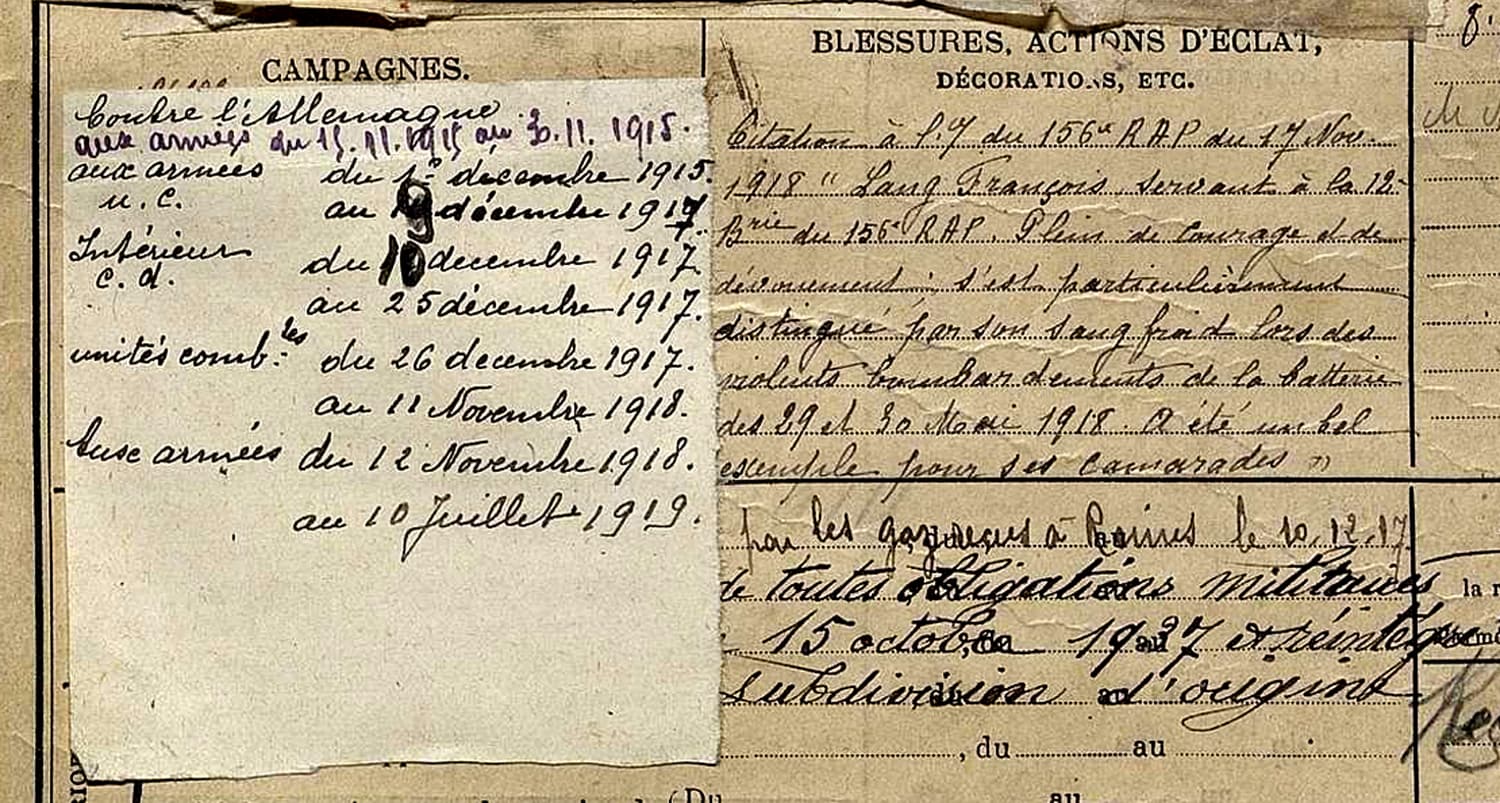 CAMPAGNES.
Contre l'Allemagne
aux armées du 15.11.1915 au 30.11.1915.
aux armées du 1er décembre 1915.
u. c. au 9 décembre 1917.
Intérieur du 10 decembre 1917.
c. d.
au 25 décembre 1917.
unités comb.tes du 26 decembre 1917.
au 11 Novembre 1918.
Aux armées du 12 Novembre 1918.
au 10 Juillet 1919.
BLESSURES, ACTIONS D'ÉCLAT,
DÉCORATIONS, ETC.
Citation à l'. du 156e RAP du 17 Nov.
1918 " Lang François servant à la 12e
Brie du 156e RAP. Plein de courage et de
dévouement ; s'est particulièrement
distingué par son sang froid lors des
violents bombardements de la batterie
des 29 et 30 Mai 1918. A été un bel
exemple pour ses camarades "
par les gaz à Reims le 10.12.17
de toutes obligations militaires
15 octobre 1937 et réintègre
subdivision d'origine
, du au
(Du
au
8.
la